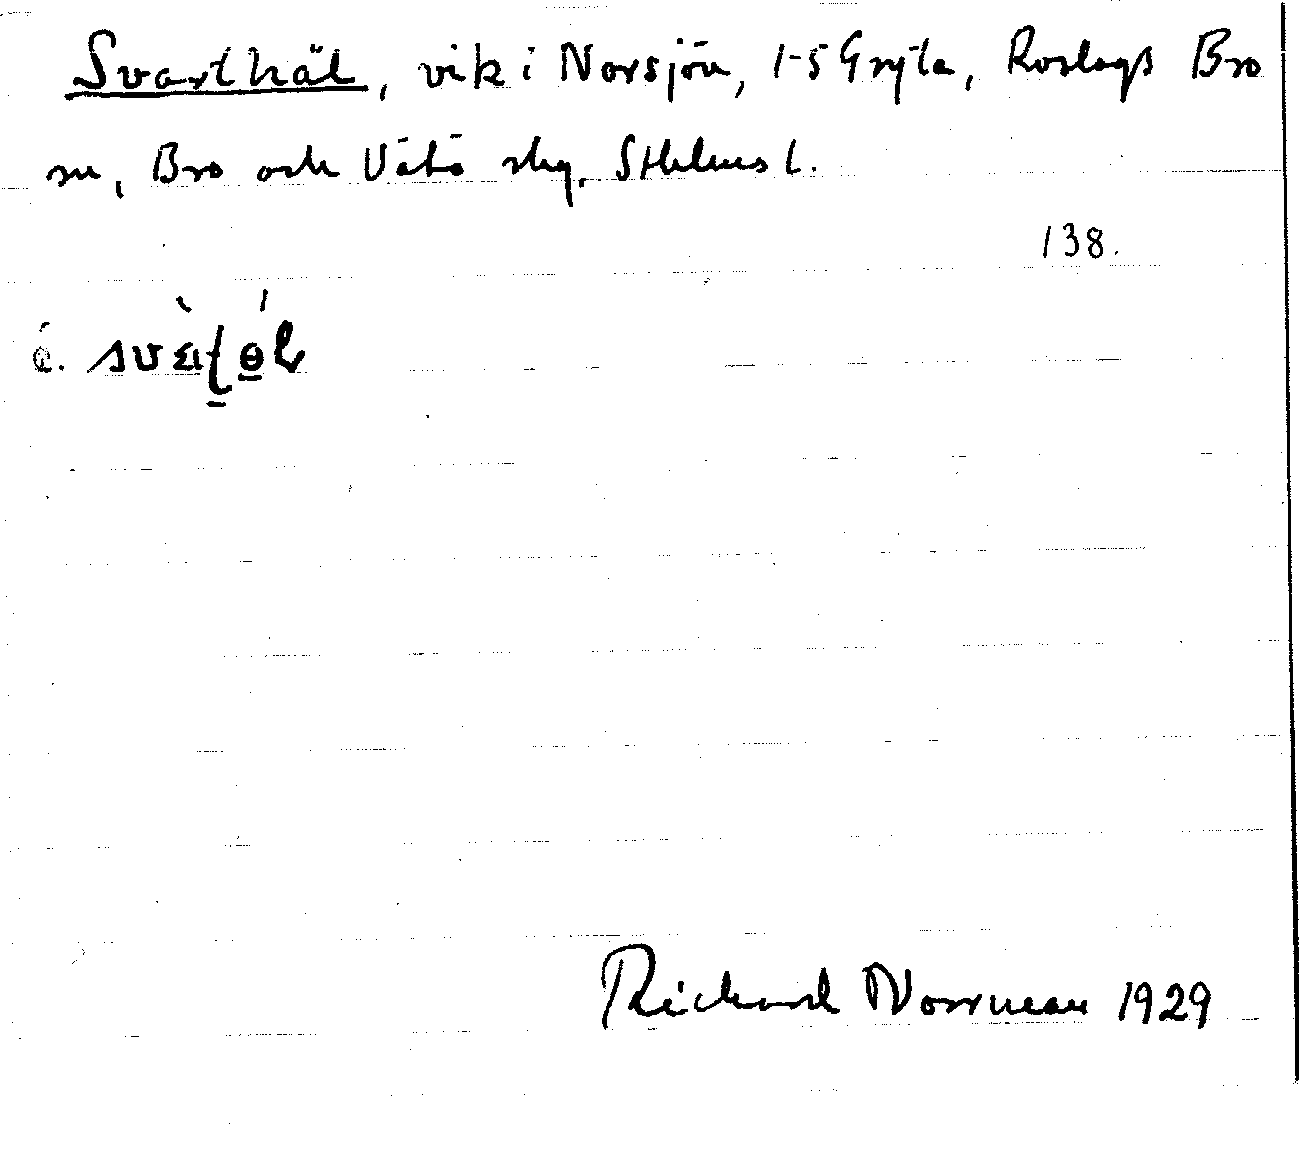 Svarthäl, vik i Norsjön, 1-5 Gryta, Roslags Bro
sn, Bro och Vätö skg, Sthlms l.
138.
Richard Norrman 1929